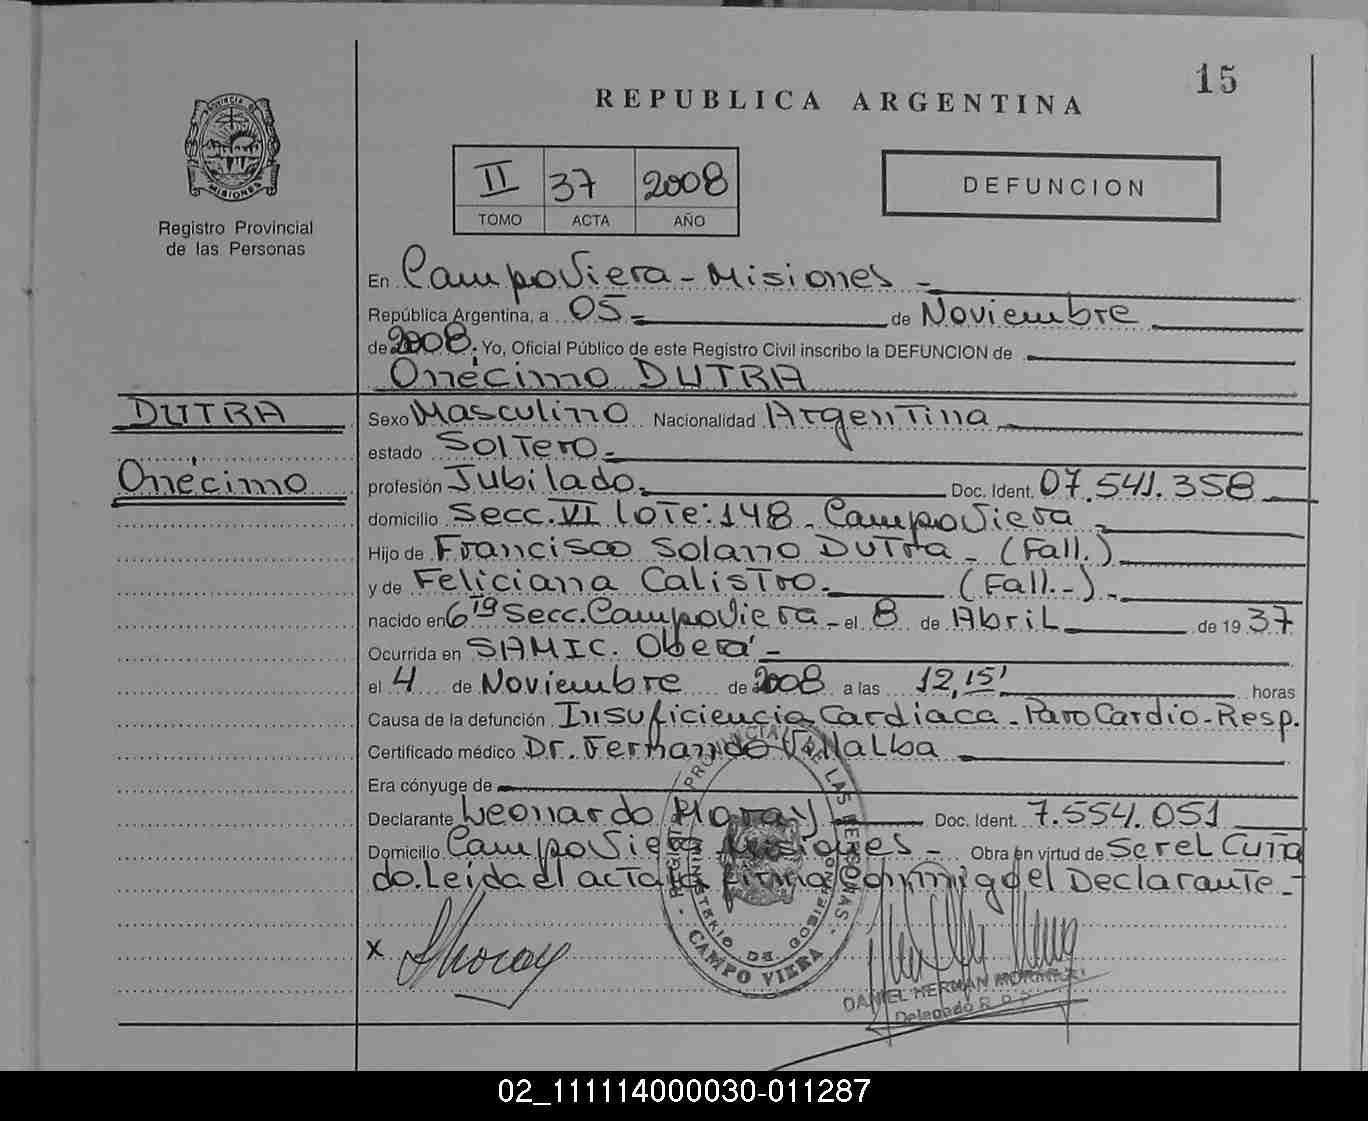 15
REPUBLICA ARGENTINA
PROVINCIA DE
MISIONES
Registro Provincial
de las Personas
II 37 2008
TOMO ACTA AÑO
DEFUNCION
En Campo Viera - Misiones -
República Argentina, a 05 - de Noviembre
de 2008. Yo, Oficial Público de este Registro Civil inscribo la DEFUNCION de
Onécimo DUTRA
DUTRA
Onécimo
Sexo Masculino Nacionalidad Argentina
estado Soltero.-
profesión Jubilado. Doc. Ident. 07.541.358
domicilio Secc. VI lote: 148 - Campo Viera -
Hijo de Francisco Solano Dutra - (Fall.)
y de Feliciana Calistro. (Fall.-).-
nacido en 6ta Secc. Campo Viera - el 8 de Abril de 1937
Ocurrida en SAMIC. Oberá -
el 4 de Noviembre de 2008 a las 12,15' horas
Causa de la defunción Insuficiencia Cardiaca - Paro Cardio-Resp.
Certificado médico Dr. Fernando Villalba
Era cónyuge de
Declarante Leonardo Horay Doc. Ident. 7.554.051
Domicilio Campo Viera Misiones - Obra en virtud de Ser el Cuña
do. Leída el acta la firma conmigo el Declarante.-
x Lhoray
PROVINCIAL DE LAS PERSONAS
MINISTERIO DE GOBIERNO
CAMPO VIERA
DANIEL HERMAN
Delegado R.P.P.
02_111114000030-011287